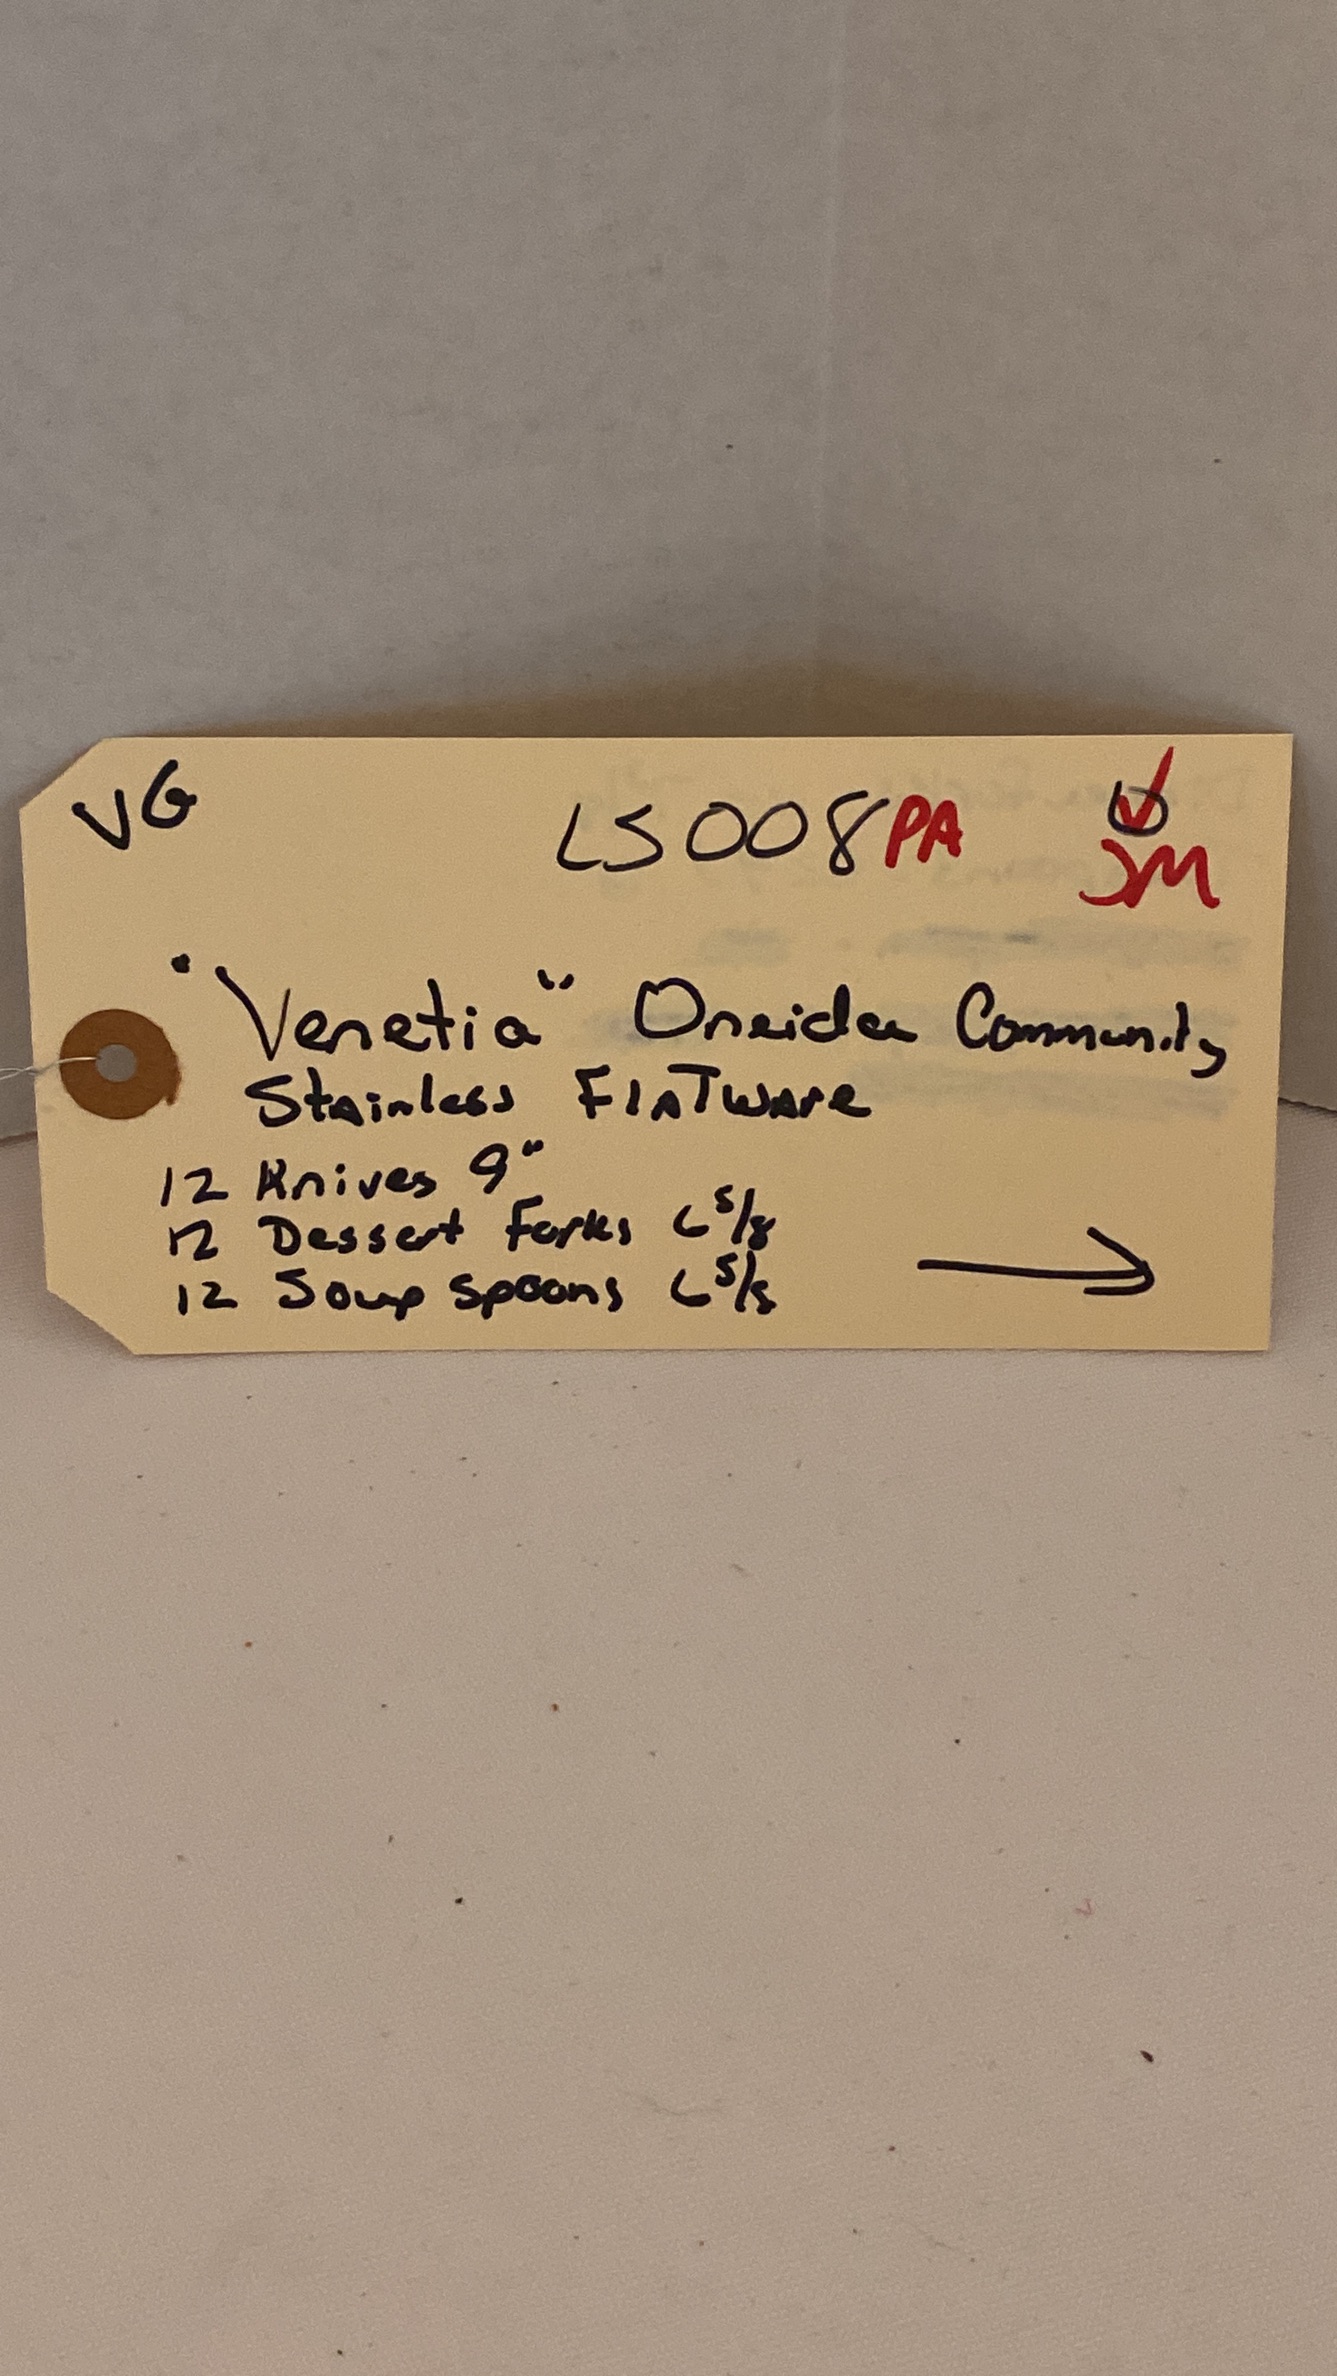 VG LS008PA D
JM
"Venetia" Oneida Community
Stainless FlATware
12 Knives 9"
12 Dessert Forks 6 5/8
12 Soup spoons 6 5/8